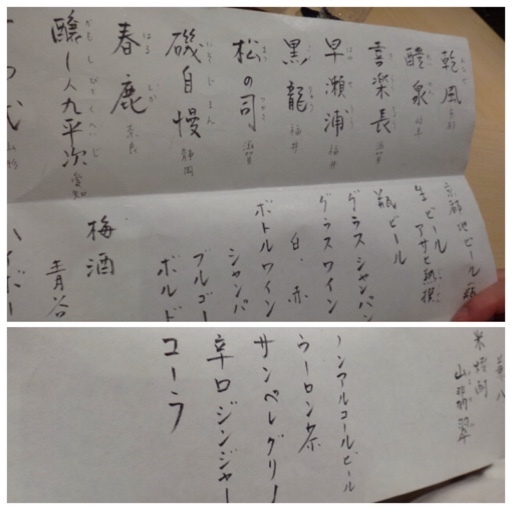 乾風 京都
醴泉 岐阜
喜楽長 滋賀
早瀬浦 福井
黒龍 福井
松の司 滋賀
磯自慢 静岡
春鹿 奈良
醸し人九平次 愛知
京都地ビール
生ビール アサヒ熟撰
瓶ビール
グラスシャンパン
グラスワイン
白・赤
ボトルワイン
シャンパ
ブルゴー
ボルド
梅酒
青谷
ハイボー
米焼酎
ノンアルコールビール
ウーロン茶
サンペレグリノ
辛口ジンジャー
コーラ